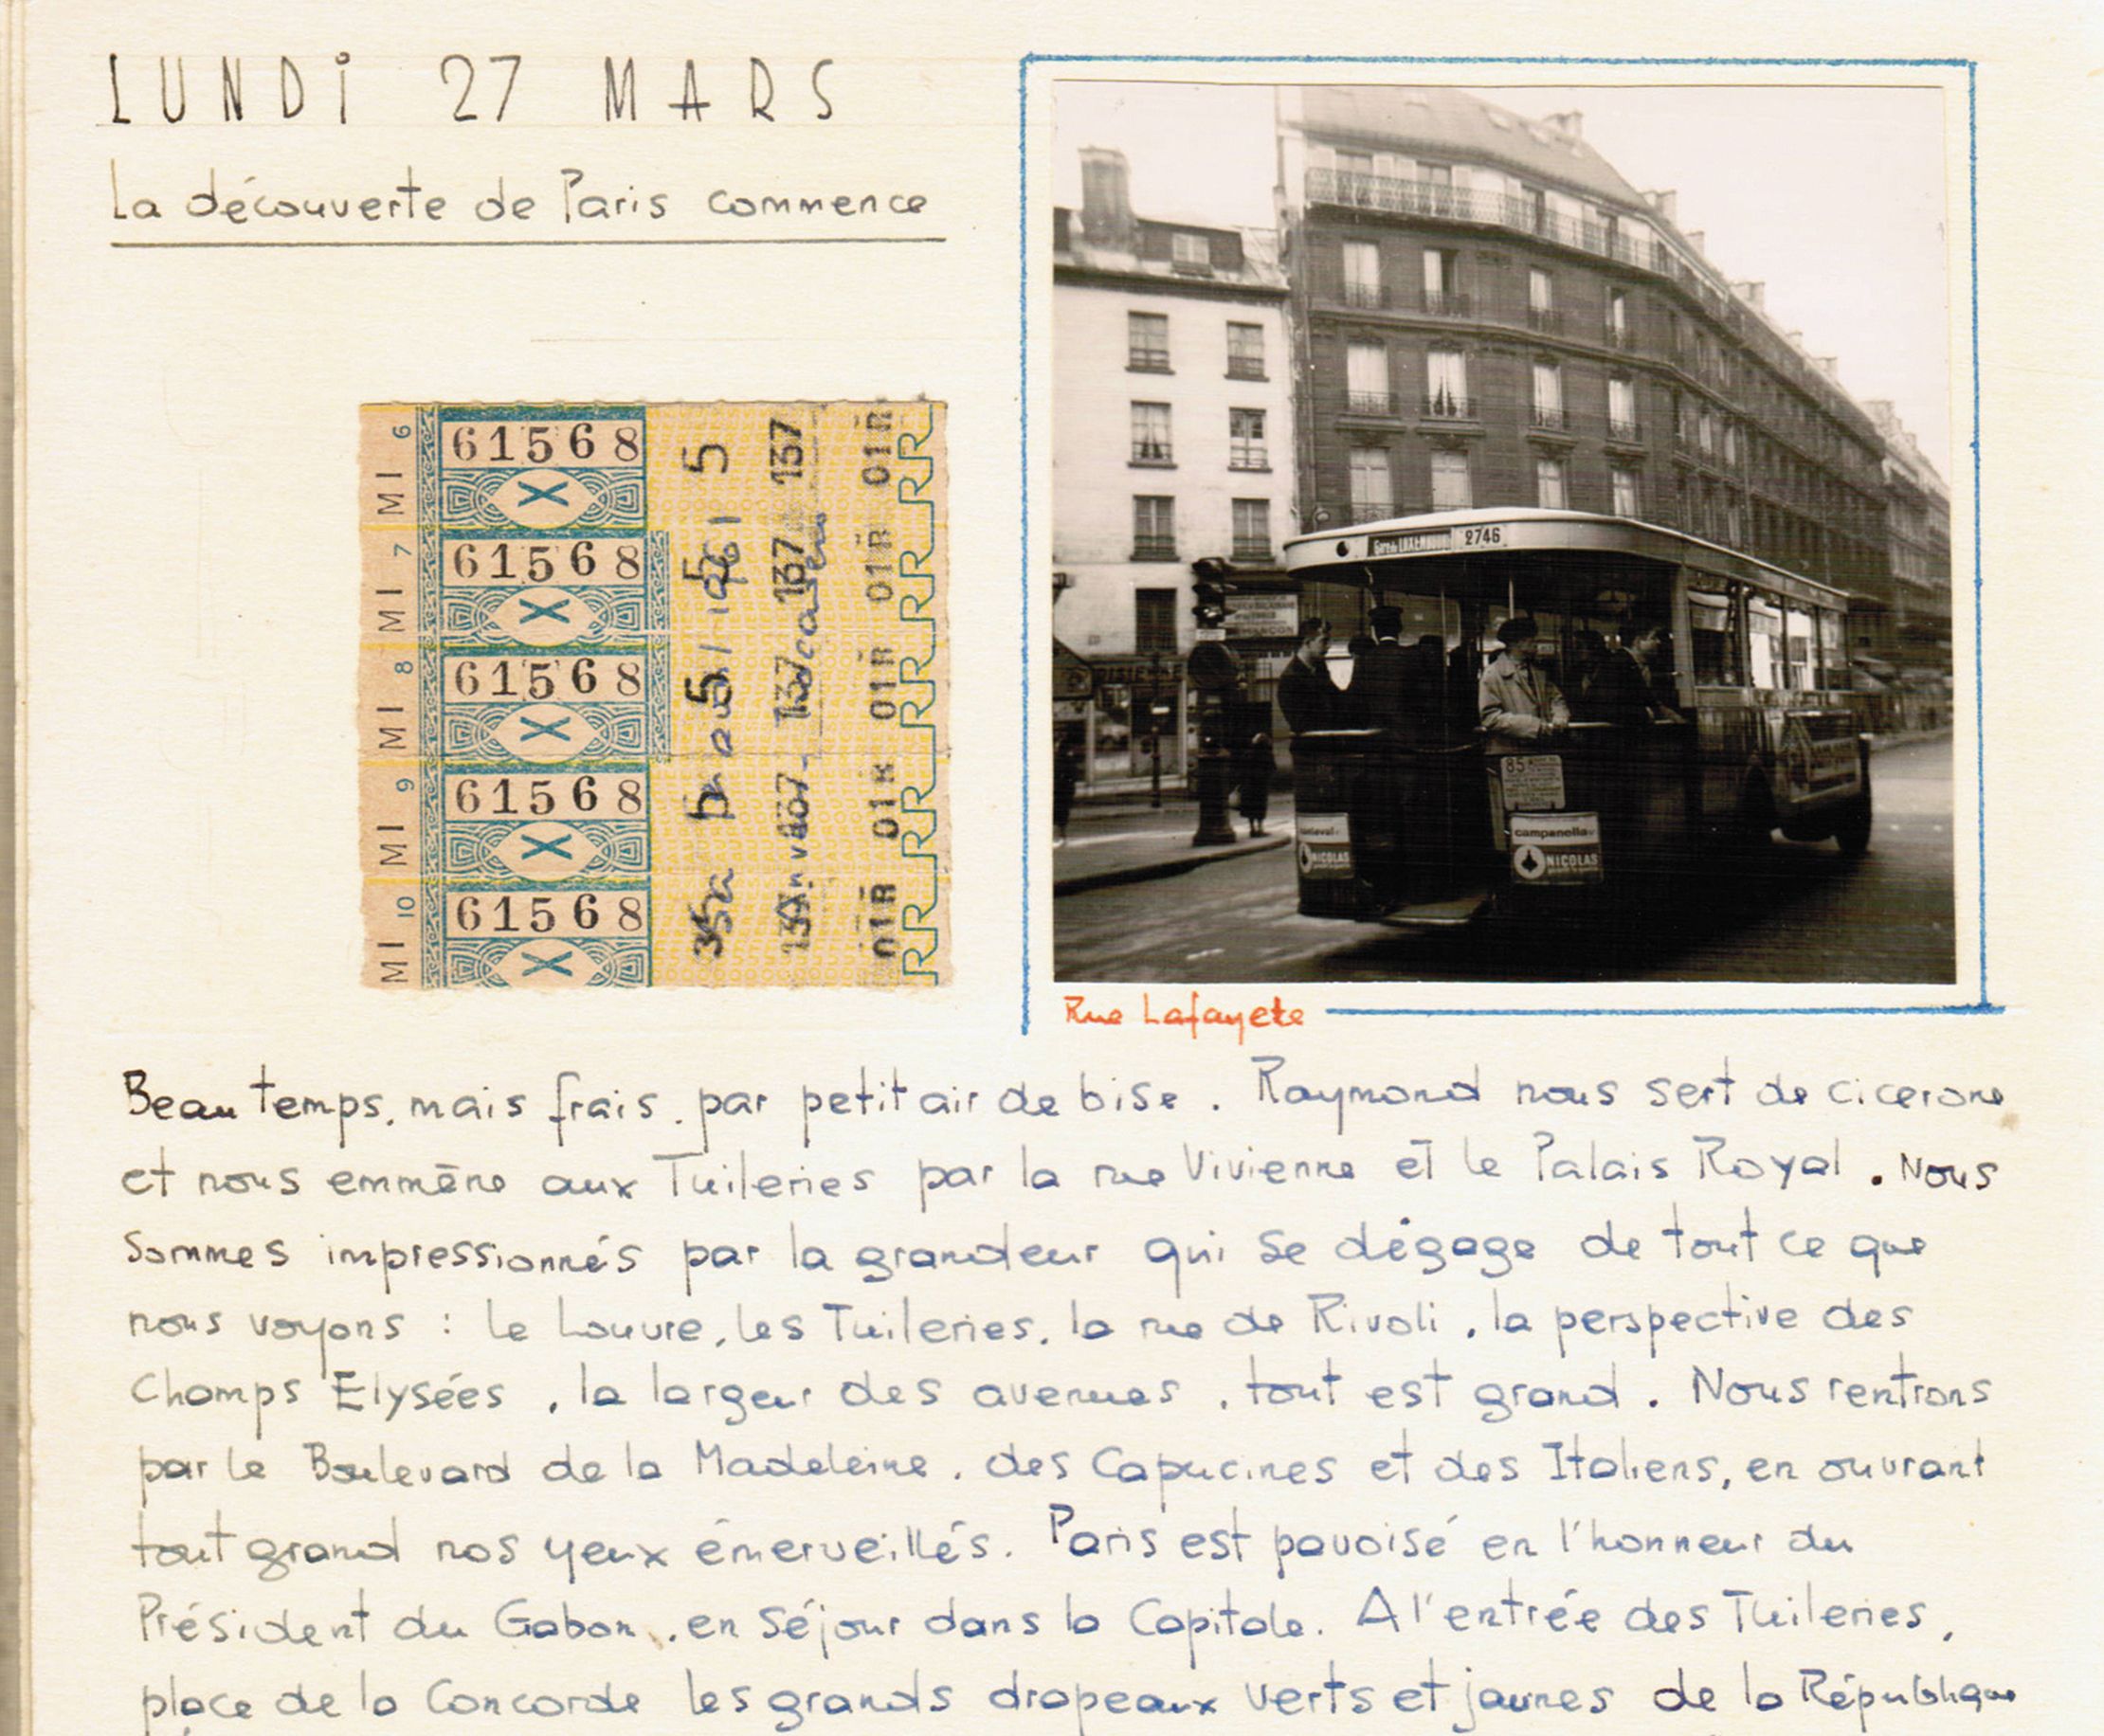 LUNDI 27 MARS
La découverte de Paris commence
MI 6
61568
X
MI 7
61568
X
MI 8
61568
X
MI 9
61568
X
MI 10
61568
X
5
137 137
01R 01R 01R 01R 01R
RRRRR
2746
85
campanella
NICOLAS
NICOLAS
Rue Lafayete
Beau temps, mais frais, par petit air de bise. Raymond nous sert de cicerone
et nous emmène aux Tuileries par la rue Vivienne et le Palais Royal. Nous
sommes impressionnés par la grandeur qui se dégage de tout ce que
nous voyons : le Louvre, les Tuileries, la rue de Rivoli, la perspective des
Champs Elysées, la largeur des avenues, tout est grand. Nous rentrons
par le Boulevard de la Madeleine, des Capucines et des Italiens, en ouvrant
tout grand nos yeux émerveillés. Paris est pavoisé en l'honneur du
Président du Gabon, en séjour dans la Capitale. A l'entrée des Tuileries,
place de la Concorde les grands drapeaux verts et jaunes de la République